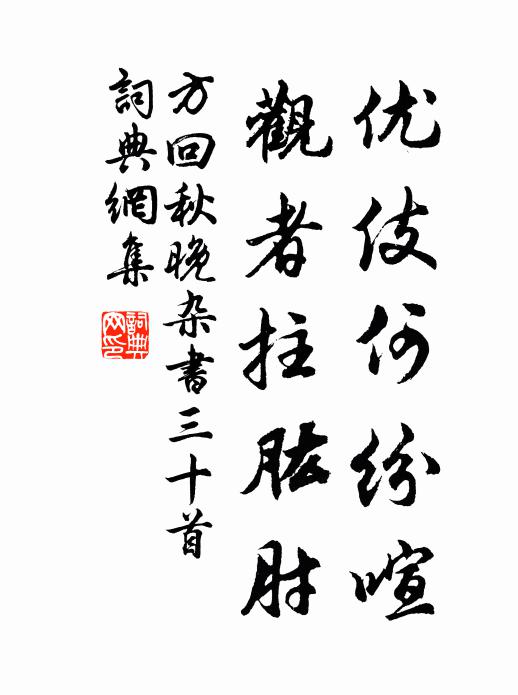 优伎何纷喧
觀者拄肱肘
方回秋晚杂書三十首
詞典網集
詞典网印